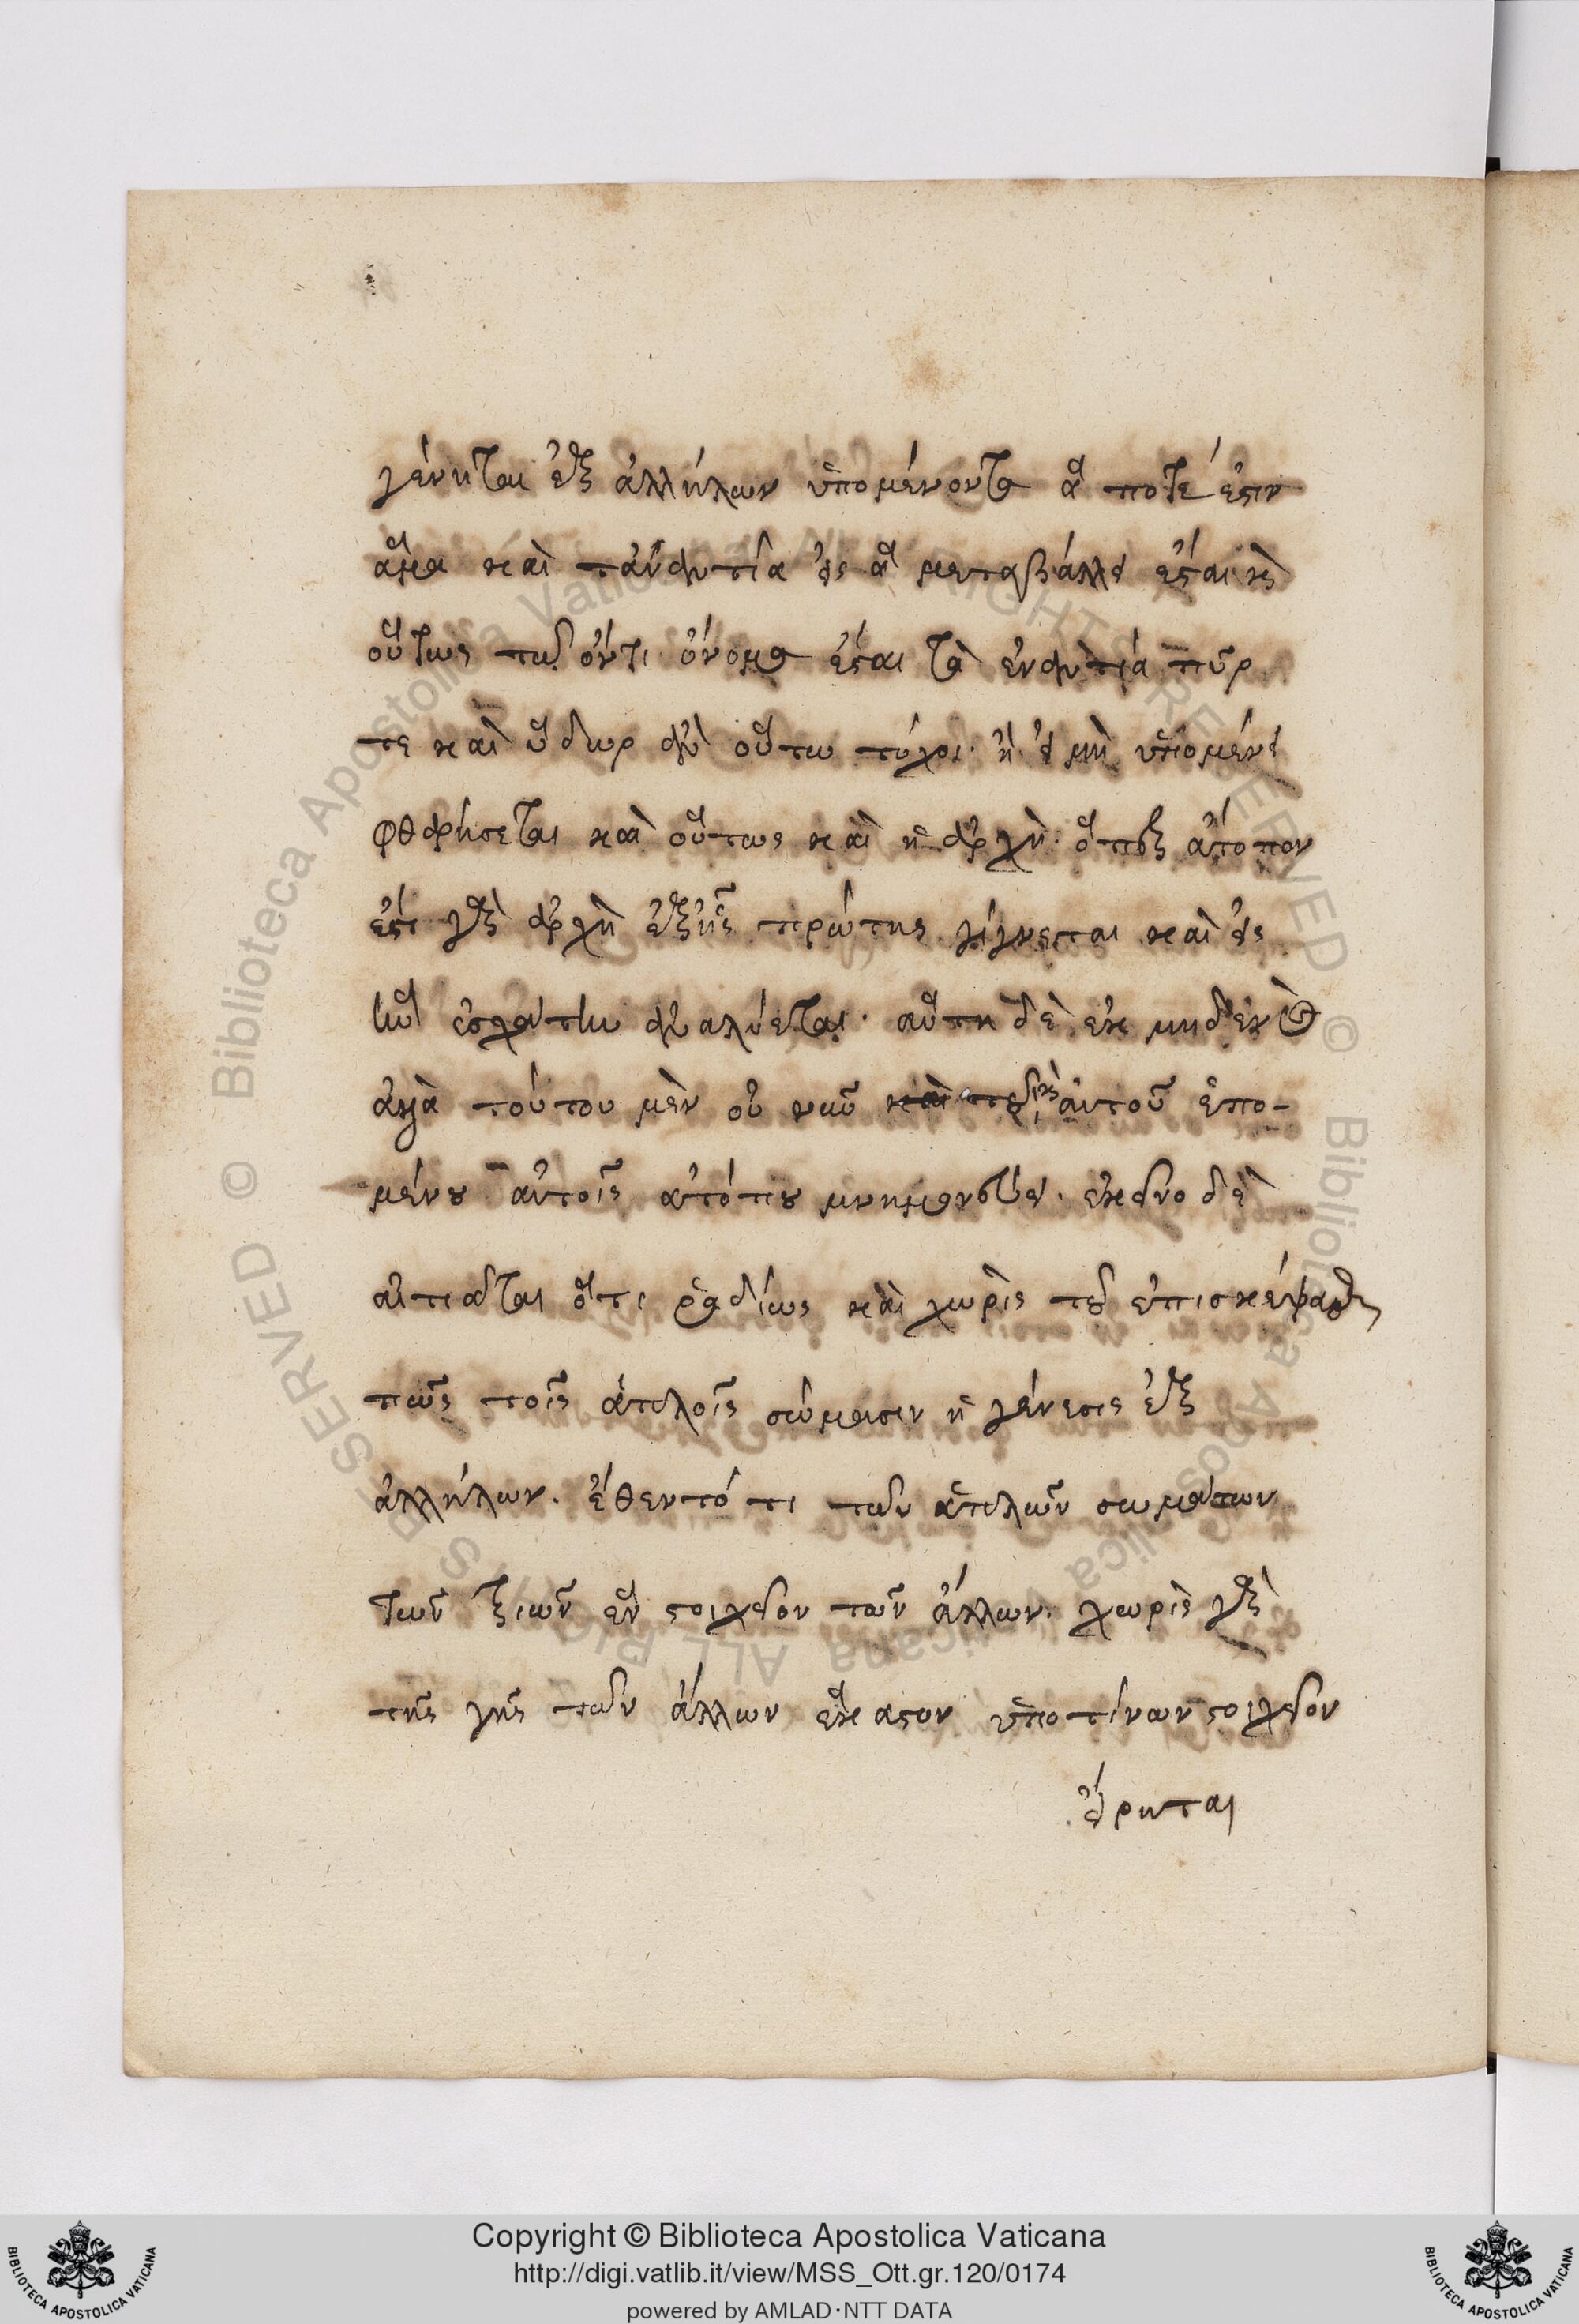 γένηται ἐξ ἀλλήλων ὑπομένοντα ἅ ποτέ ἐστιν
ἅμα καὶ τἀναντία εἰς ἃ μεταβάλλει ἔσται κὶ
οὕτως τῷ ὄντι ὄνομα ἔσται τὰ ἐναντία πῦρ
τε καὶ ὕδωρ ἂν οὕτω τύχοι. ἢ εἰ μὴ ὑπομένει
φθαρήσεται καὶ οὕτως καὶ ἡ ἀρχὴ. ὅπερ ἄτοπον
ἐστι γὰρ ἀρχὴ ἐξ ἧς πρώτης γίγνεται καὶ εἰς
ἣν ἐσχάτην ἀναλύεται. αὕτη δὲ ἐκ μηδενὸς
ἀλλὰ τούτου μὲν οὐ νῦν αὐτοῦ ἑπο-
μένου αὐτοῖς ἀτόπου μνημονεύει. ἐκεῖνο δὲ
αἰτιᾶται ὅτι ῥᾳδίως καὶ χωρὶς τοῦ ἐπισκέψασθαι
πῶς τοῖς ἁπλοῖς σώμασιν ἡ γένεσις ἐξ
ἀλλήλων. ἔθεντό τι τῶν ἁπλῶν σωμάτων
τῶν τριῶν ἓν στοιχεῖον τῶν ἄλλων. χωρὶς γὰρ
τῆς γῆς τῶν ἄλλων ἕκαστον ὑπό τίνων στοιχεῖον
εἴρηται
Copyright © Biblioteca Apostolica Vaticana
http://digi.vatlib.it/view/MSS_Ott.gr.120/0174
powered by AMLAD·NTT DATA